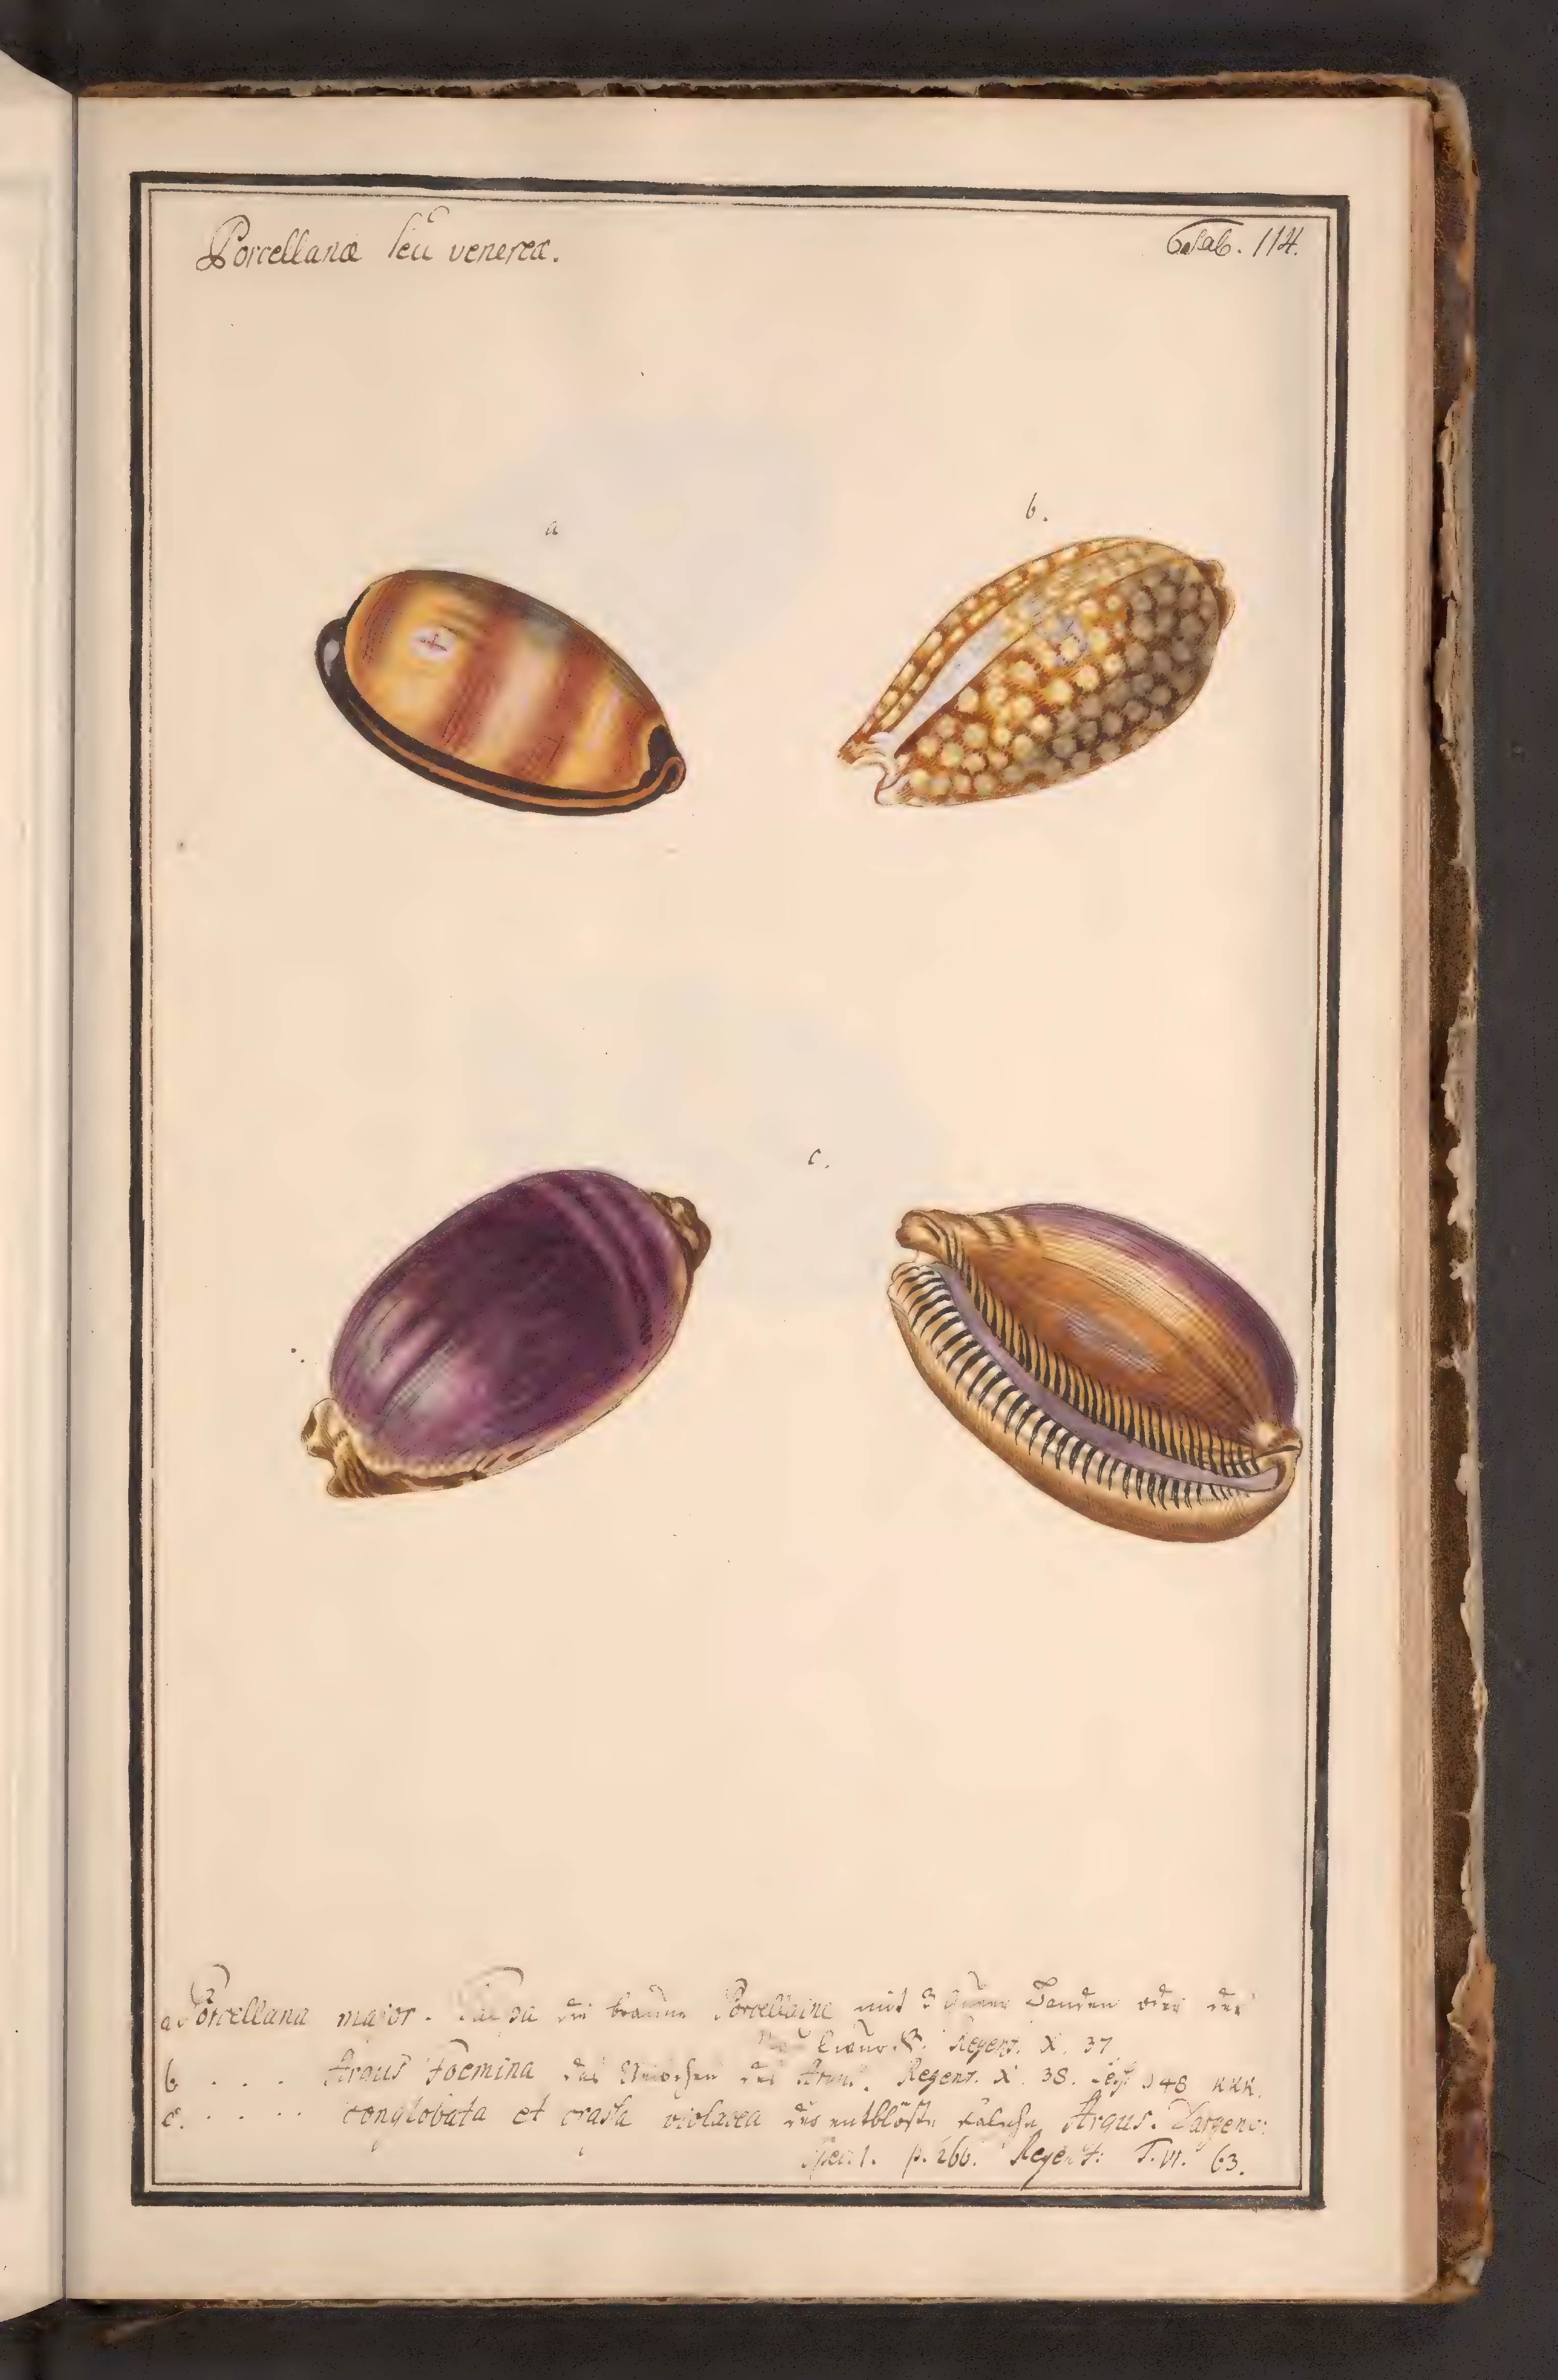 Porcellanæ seu venereæ.
Tab. 114.
a
b.
c.
a Porcellana major. Talpa die braune Porcellaine mit 3 queer Banden oder der
Regenf. X. 37
b . . . Argus Foemina das des Regenf. X. 38. 948 KKK.
c. . . . . conglobata et crassa violacea der entblöste falsche Argus. Dargenv:
p. 266. Regenf: T. VI. 63.